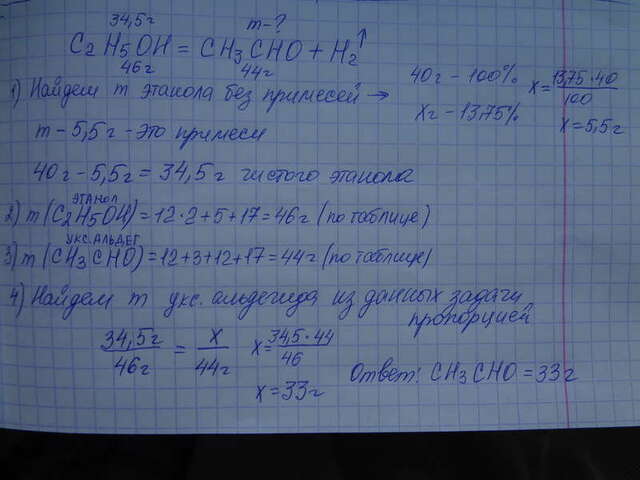 34,5г m-?
C2H5OH = CH3CHO + H2↑
46г 44г
1) Найдем m этанола без примесей → 40г - 100% x = 13,75·40/100
xг - 13,75% x = 5,5г
m - 5,5г - это примеси
40г - 5,5г = 34,5г чистого этанола
этанол
2) m (C2H5OH) = 12·2+5+17 = 46г (по таблице)
укс.альдег
3) m (CH3CHO) = 12+3+12+17 = 44г (по таблице)
4) Найдем m укс. альдегида из данных задачи
пропорцией
34,5г/46г = x/44г x = 34,5·44/46
x = 33г
Ответ: CH3CHO = 33г